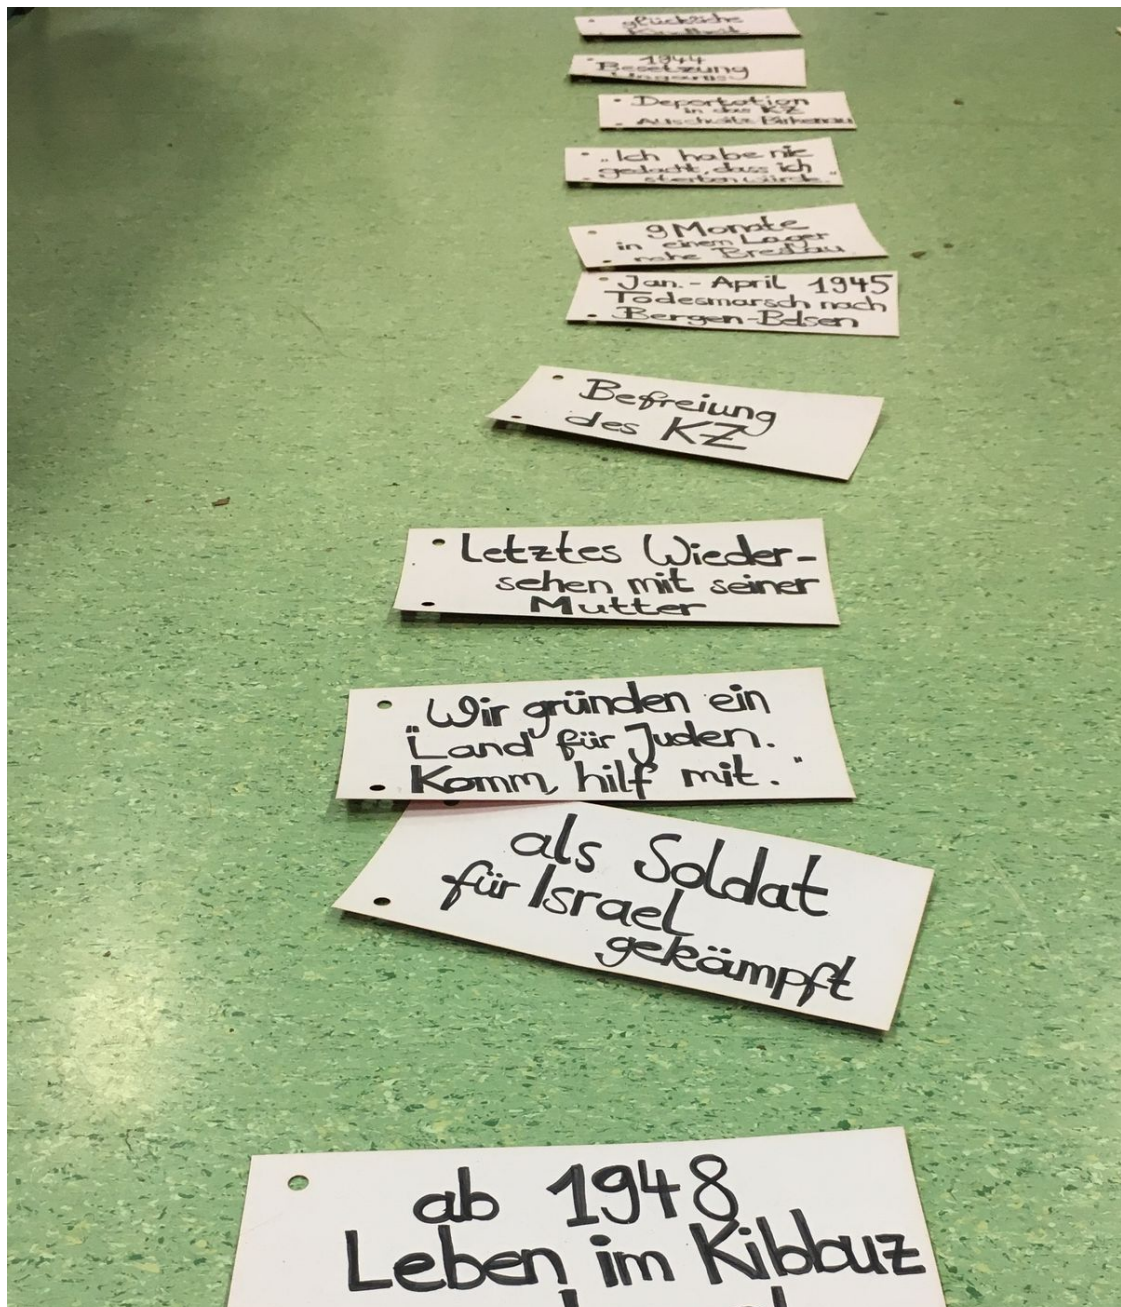 glückliche
Kindheit
1944
Besetzung
Ungarns
Deportation
in das KZ
Auschwitz Birkenau
„Ich habe nie
gedacht, dass ich
sterben würde."
9 Monate
in einem Lager
nahe Breslau
Jan. - April 1945
Todesmarsch nach
Bergen-Belsen
Befreiung
des KZ
Letztes Wieder-
sehen mit seiner
Mutter
Wir gründen ein
"Land für Juden.
Komm, hilf mit."
als Soldat
für Israel
gekämpft
ab 1948
Leben im Kibbuz